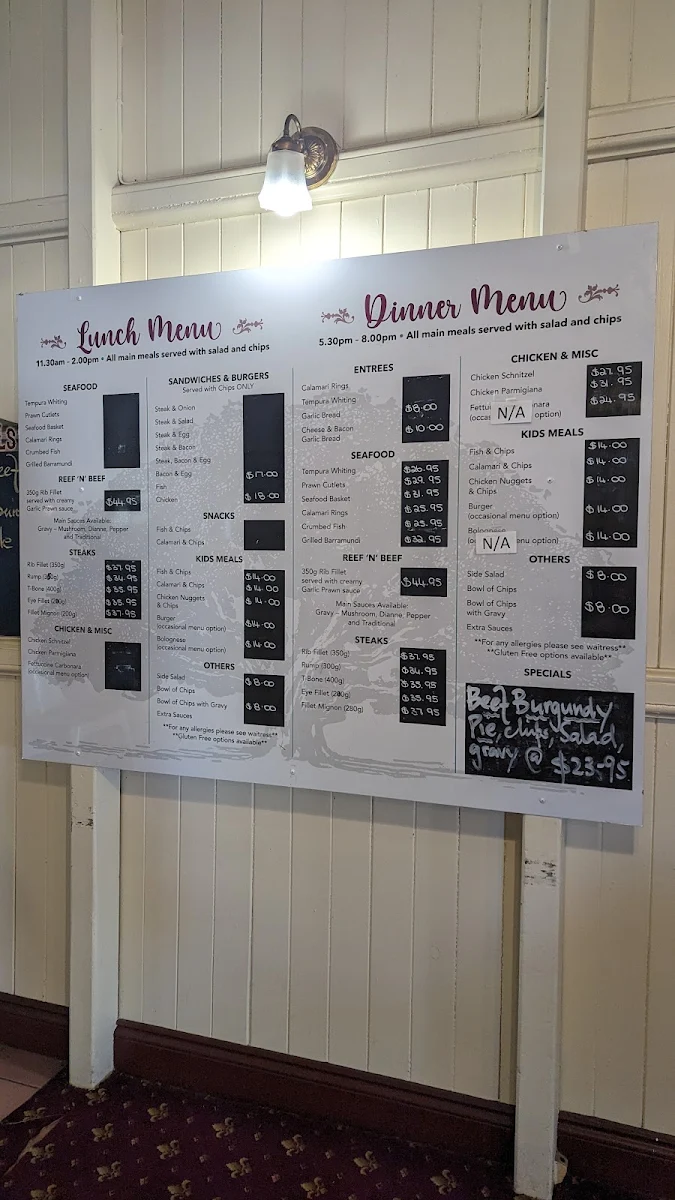 Lunch Menu
11.30am - 2.00pm • All main meals served with salad and chips
SEAFOOD
Tempura Whiting
Prawn Cutlets
Seafood Basket
Calamari Rings
Crumbed Fish
Grilled Barramundi
REEF 'N' BEEF
350g Rib Fillet
served with creamy
Garlic Prawn sauce
$44.95
Main Sauces Available:
Gravy – Mushroom, Dianne, Pepper
and Traditional
STEAKS
Rib Fillet (350g) $37.95
Rump $34.95
T-Bone (400g) $35.95
Eye Fillet $35.95
Filet Mignon (200g) $37.95
CHICKEN & MISC
Chicken Schnitzel
Chicken Parmigiana
Fettuccine Carbonara
(occasional menu option)
SANDWICHES & BURGERS
Served with Chips ONLY
Steak & Onion
Steak & Salad
Steak & Egg
Steak & Bacon
Steak, Bacon & Egg
Bacon & Egg $17.00
Fish
Chicken $18.00
SNACKS
Fish & Chips
Calamari & Chips
KIDS MEALS
Fish & Chips $14.00
Calamari & Chips $14.00
Chicken Nuggets
& Chips $14.00
Burger
(occasional menu option) $14.00
Bolognese
(occasional menu option) $14.00
OTHERS
Side Salad $8.00
Bowl of Chips
Bowl of Chips with Gravy $8.00
Extra Sauces
**For any allergies please see waitress**
**Gluten Free options available**
Dinner Menu
5.30pm - 8.00pm • All main meals served with salad and chips
ENTREES
Calamari Rings
Tempura Whiting
Garlic Bread $8.00
Cheese & Bacon
Garlic Bread $10.00
SEAFOOD
Tempura Whiting $26.95
Prawn Cutlets $29.95
Seafood Basket $31.95
Calamari Rings $25.95
Crumbed Fish $25.95
Grilled Barramundi $32.95
REEF 'N' BEEF
350g Rib Fillet
served with creamy
Garlic Prawn sauce
$44.95
Main Sauces Available:
Gravy – Mushroom, Dianne, Pepper
and Traditional
STEAKS
Rib Fillet (350g) $37.95
Rump (300g) $34.95
T-Bone (400g) $35.95
Eye Fillet $35.95
Fillet Mignon (280g) $37.95
CHICKEN & MISC
Chicken Schnitzel $27.95
Chicken Parmigiana $31.95
Fettu N/A nara $24.95
(occas option)
KIDS MEALS
Fish & Chips $14.00
Calamari & Chips $14.00
Chicken Nuggets
& Chips $14.00
Burger
(occasional menu option) $14.00
Bolognese $14.00
N/A enu option)
OTHERS
Side Salad $8.00
Bowl of Chips
Bowl of Chips
with Gravy $8.00
Extra Sauces
**For any allergies please see waitress**
**Gluten Free options available**
SPECIALS
Beef Burgundy
Pie, chips, Salad,
gravy @ $23.95